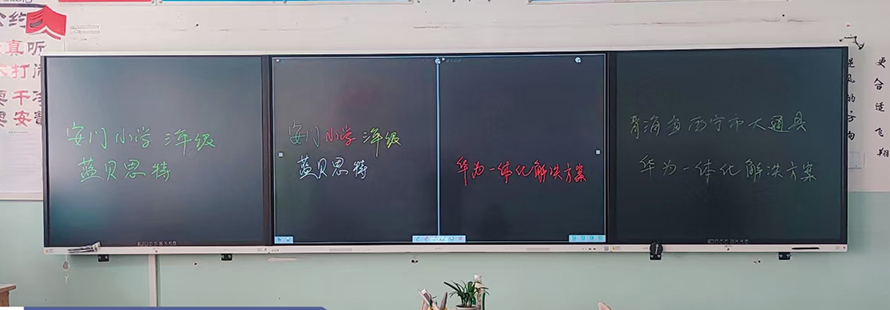 安门小学 三年级
蓝贝思特
安门小学 三年级
蓝贝思特
华为一体化解决方案
青海省西宁市大通县
华为一体化解决方案
更合适飞翔
逆风的方向
公约
真听
打闹
干净
安